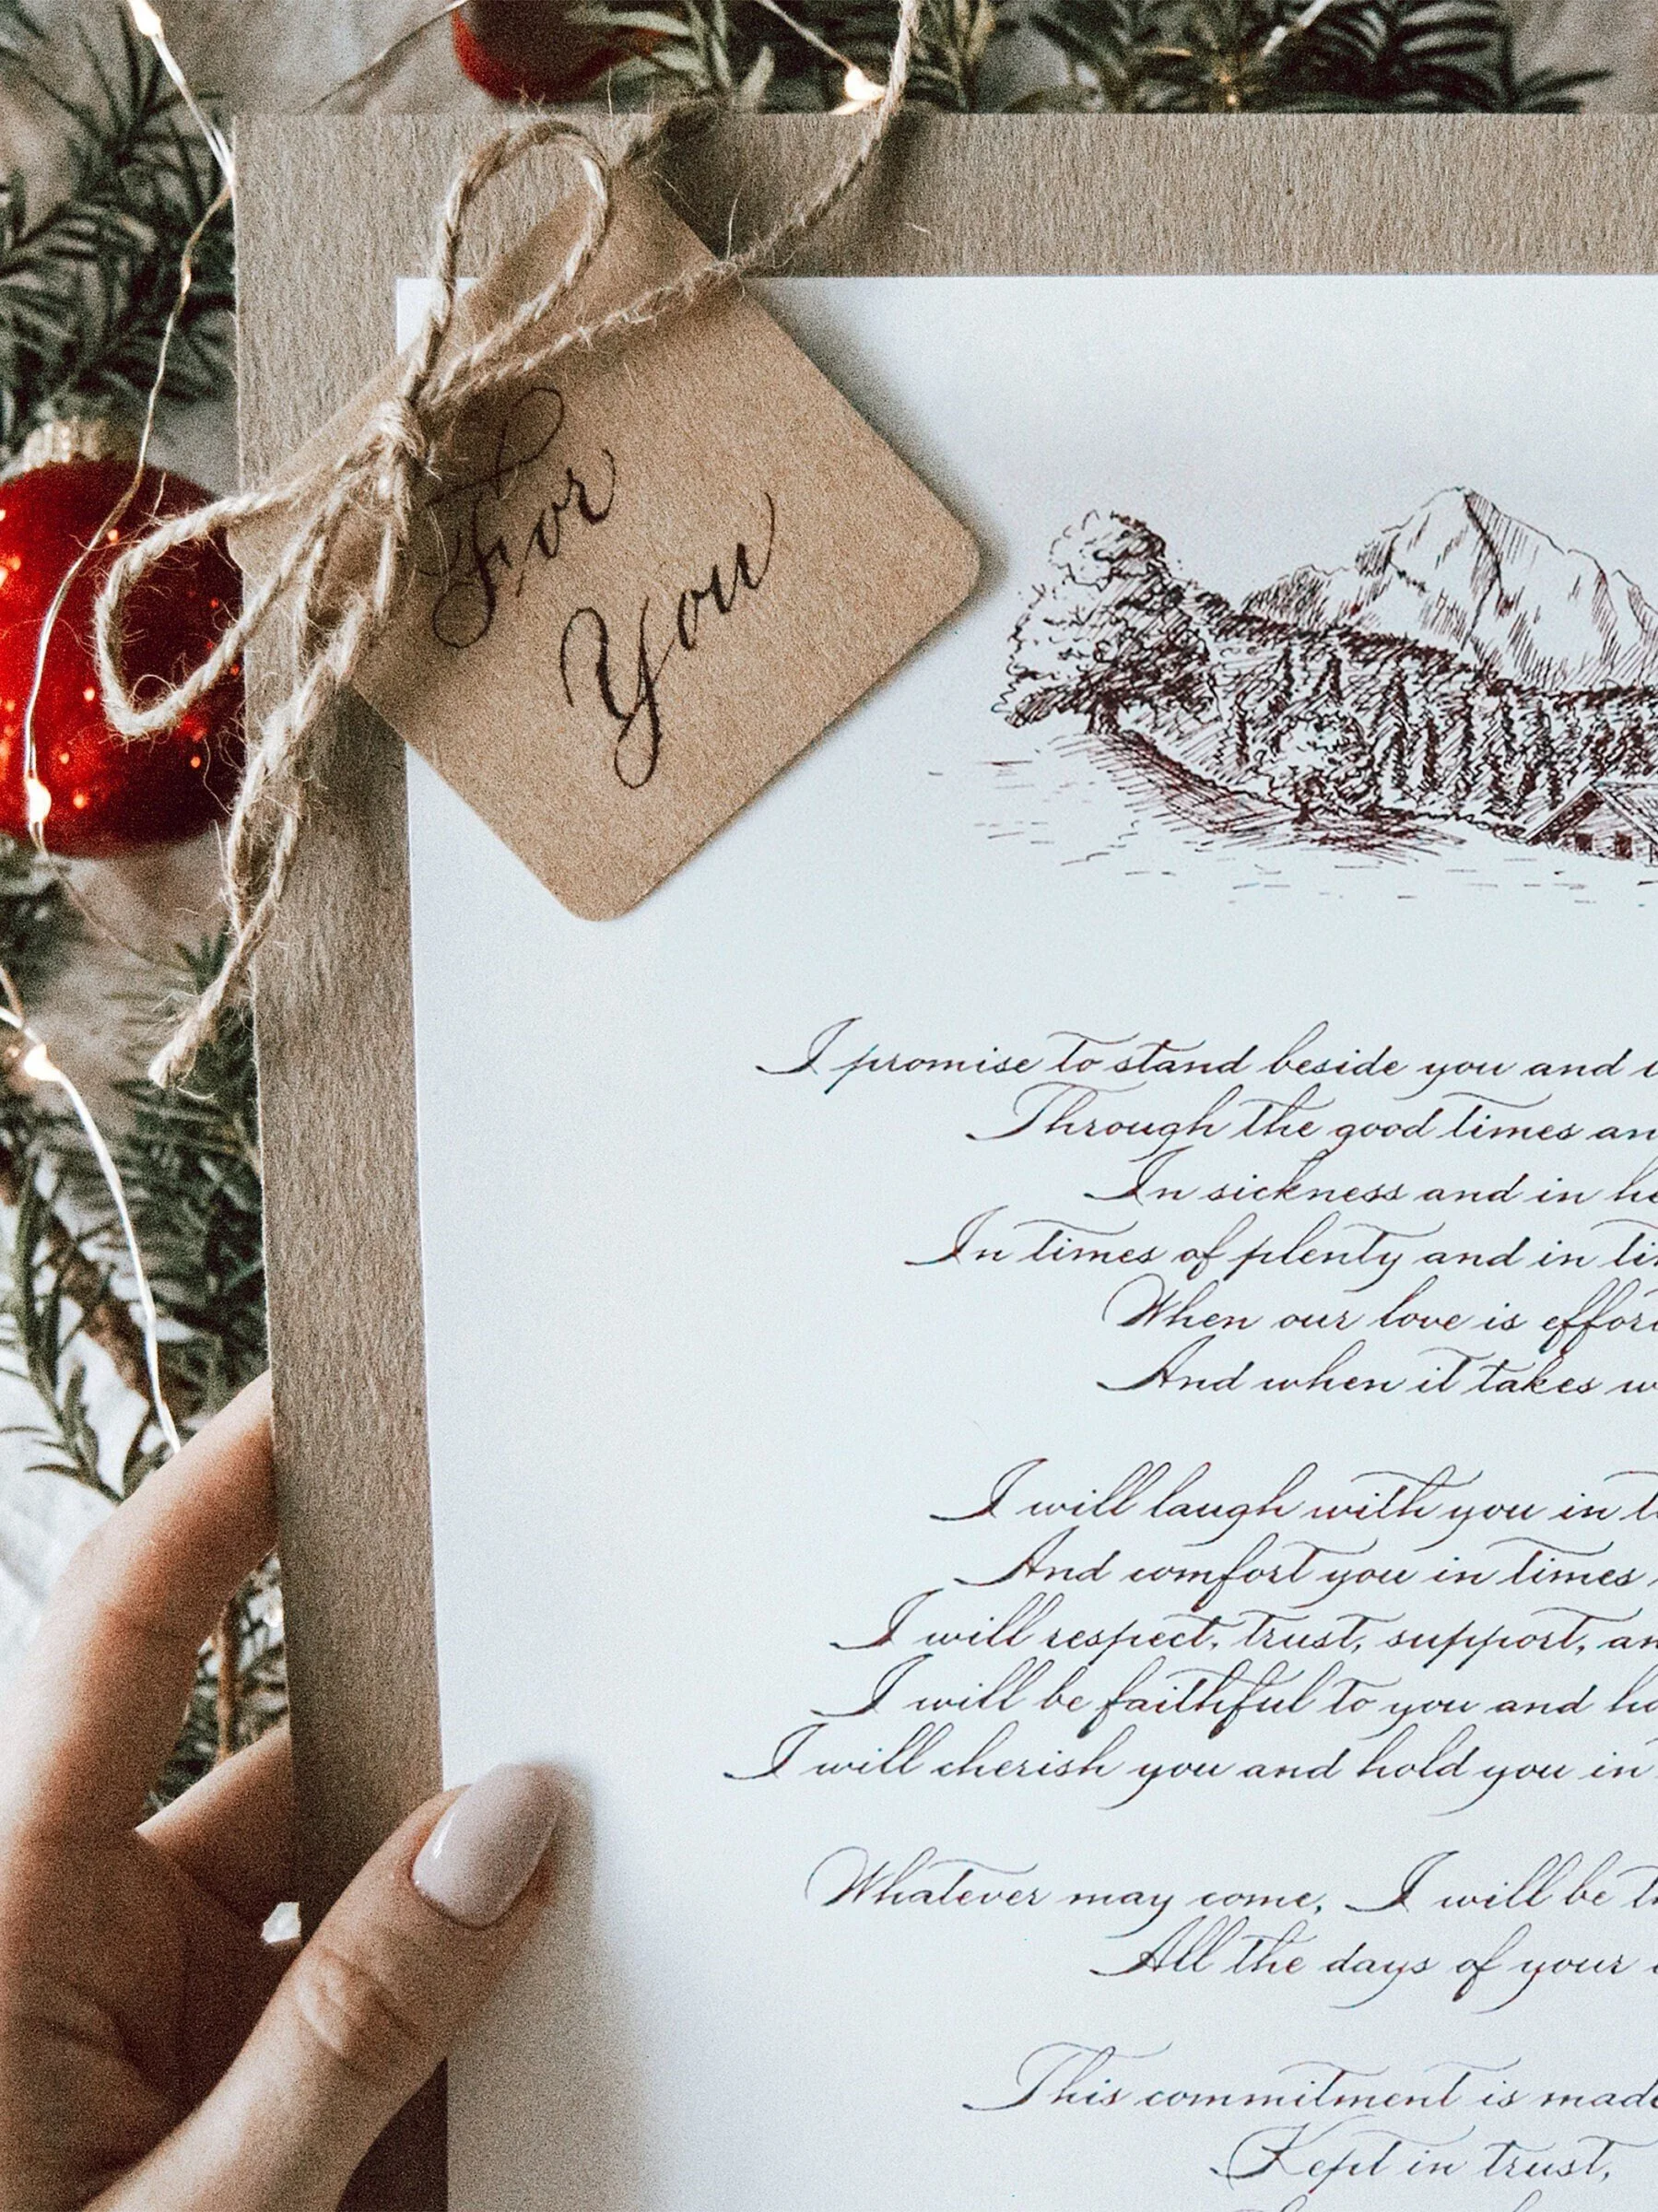 For
You
I promise to stand beside you and
Through the good times
In sickness and in
In times of plenty and in
When our love is
And when it takes
I will laugh with you in
And comfort you in times
I will respect, trust, support,
I will be faithful to you and
I will cherish you and hold you in
Whatever may come, I will be
All the days of your
This commitment is
Kept in trust,